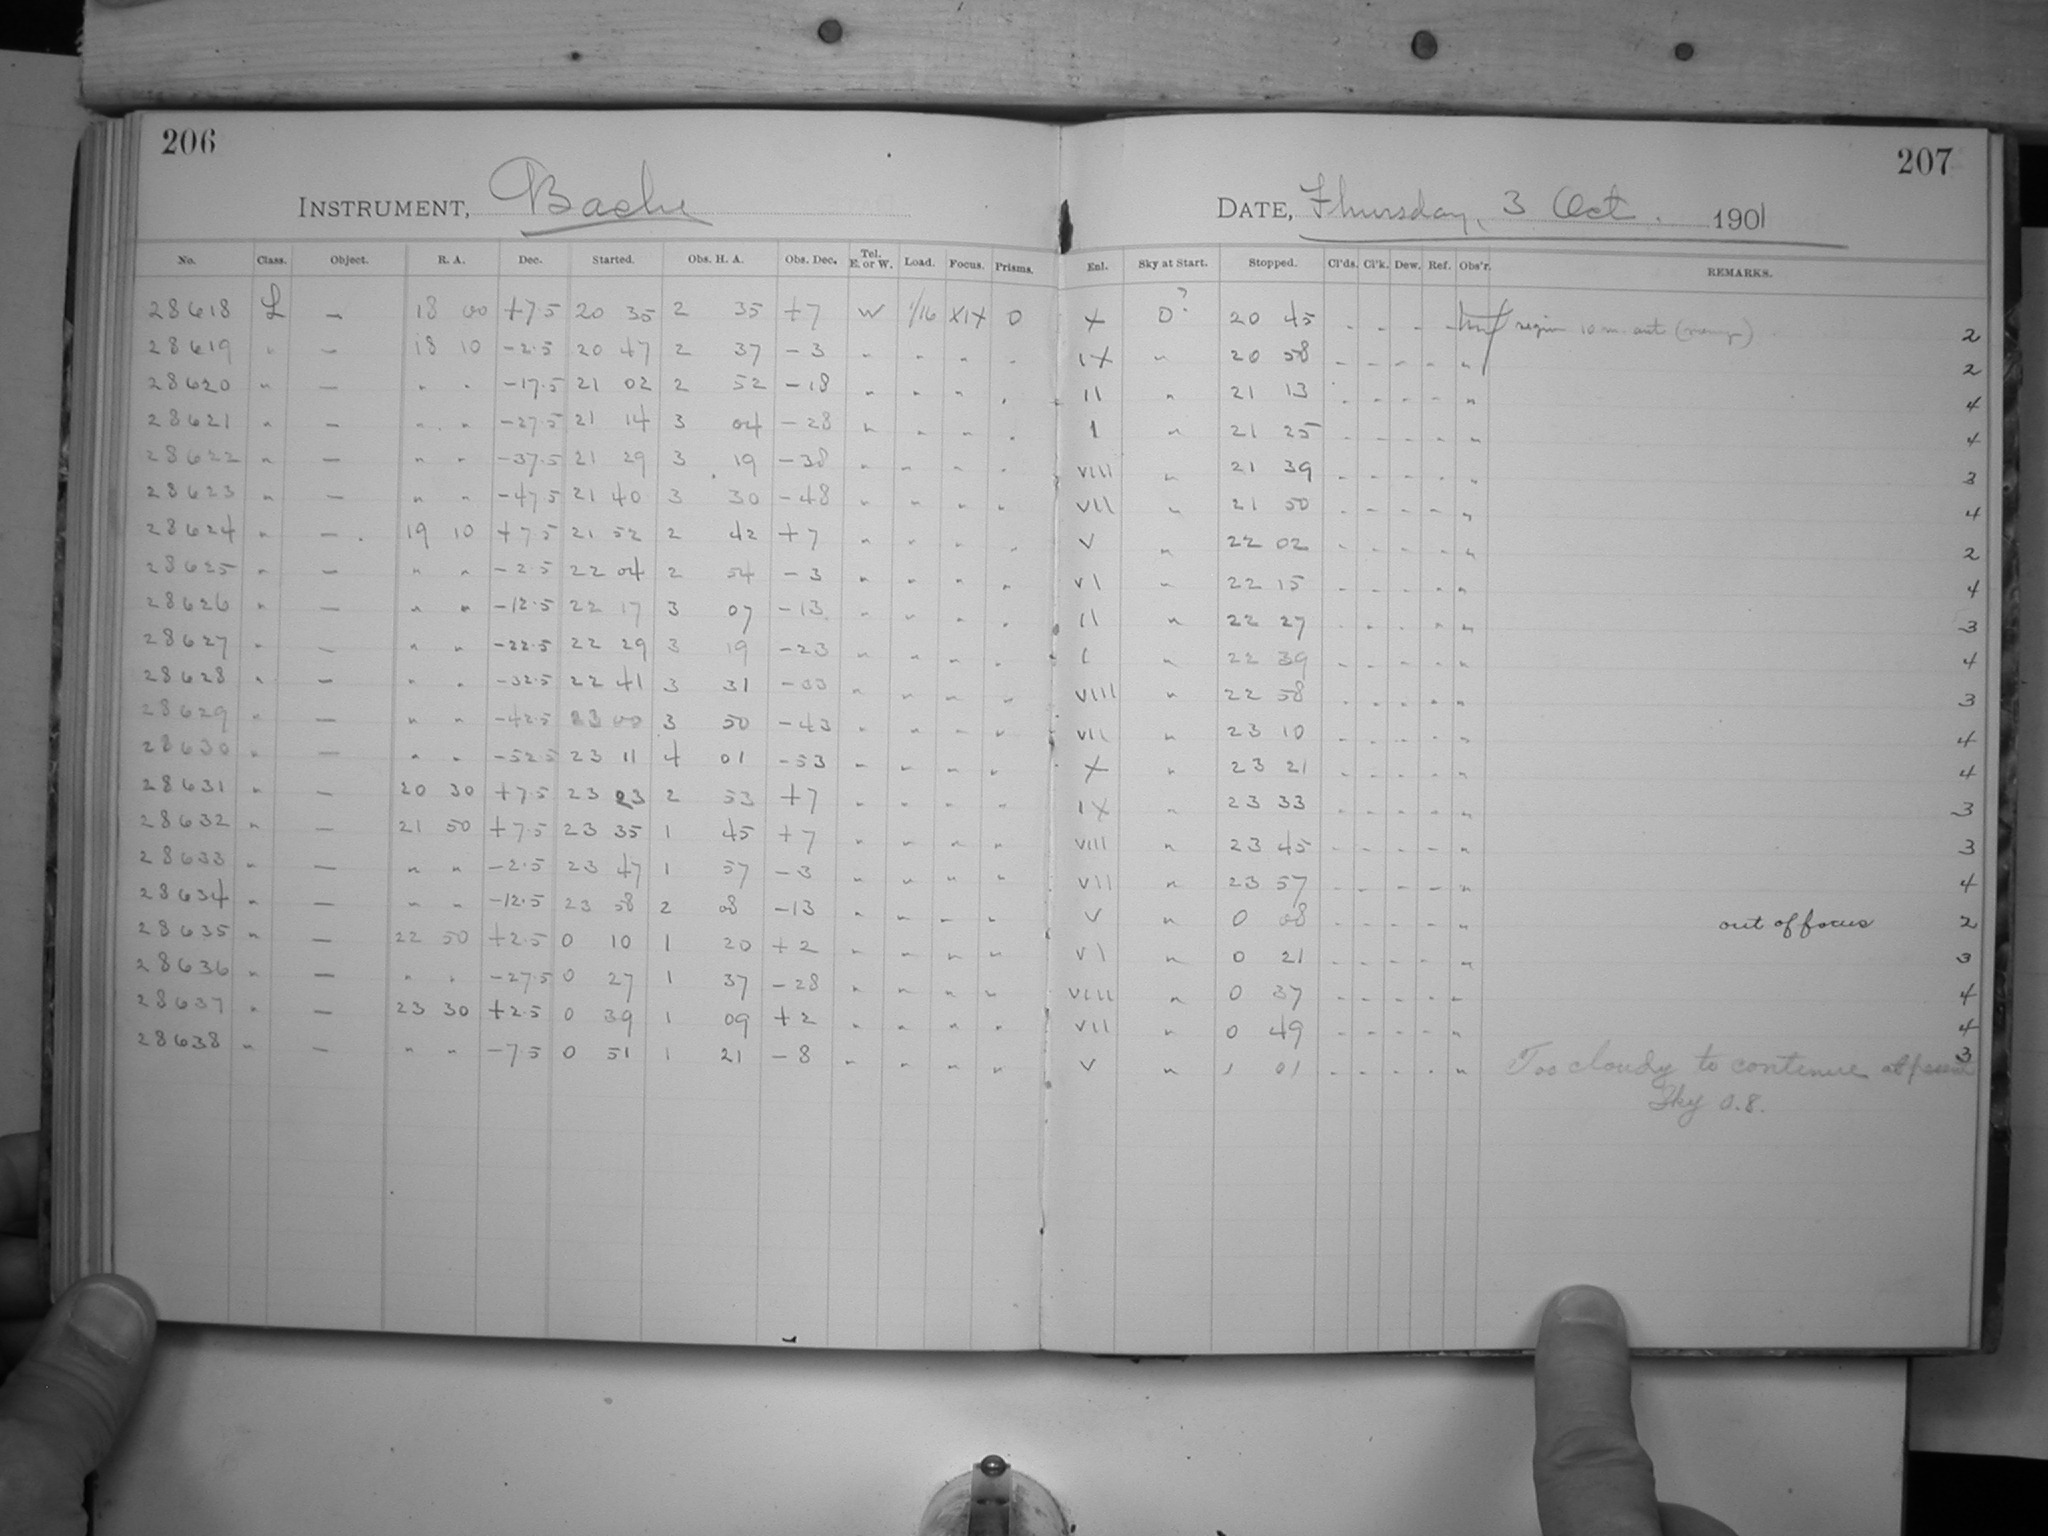 206
207
INSTRUMENT, Bache
DATE, Thursday, 3 Oct. 1901
No. Class. Object. R. A. Dec. Started. Obs. H. A. Obs. Dec. Tel. E. or W. Load. Focus. Prisms. Enl. Sky at Start. Stopped. Cl'ds. Cl'k. Dew. Ref. Obs'r. REMARKS.
28618 L — 18 00 +7.5 20 35 2 35 +7 W 1/16 XIX 0 X 0? 20 45 - - - - region 10 m. out 2
28619 " — 18 10 -2.5 20 47 2 37 -3 " " " " IX " 20 58 - - - - " 2
28620 " — " " -17.5 21 02 2 52 -18 " " " " II " 21 13 - - - - " 4
28621 " — " " -27.5 21 14 3 04 -28 " " " " I " 21 25 - - - - " 4
28622 " — " " -37.5 21 29 3 19 -38 " " " " VIII " 21 39 - - - - " 3
28623 " — " " -47.5 21 40 3 30 -48 " " " " VII " 21 50 - - - - " 4
28624 " — 19 10 +7.5 21 52 2 42 +7 " " " " V " 22 02 - - - - " 2
28625 " — " " -2.5 22 04 2 54 -3 " " " " VI " 22 15 - - - - " 4
28626 " — " " -12.5 22 17 3 07 -13 " " " " II " 22 27 - - - - " 3
28627 " — " " -22.5 22 29 3 19 -23 " " " " I " 22 39 - - - - " 4
28628 " — " " -32.5 22 41 3 31 -33 " " " " VIII " 22 58 - - - - " 3
28629 " — " " -42.5 23 00 3 50 -43 " " " " VII " 23 10 - - - - " 4
28630 " — " " -52.5 23 11 4 01 -53 " " " " X " 23 21 - - - - " 4
28631 " — 20 30 +7.5 23 23 2 53 +7 " " " " IX " 23 33 - - - - " 3
28632 " — 21 50 +7.5 23 35 1 45 +7 " " " " VIII " 23 45 - - - - " 3
28633 " — " " -2.5 23 47 1 57 -3 " " " " VII " 23 57 - - - - " 4
28634 " — " " -12.5 23 58 2 08 -13 " " " " V " 0 08 - - - - " out of focus 2
28635 " — 22 50 +2.5 0 10 1 20 +2 " " " " VI " 0 21 - - - - " 3
28636 " — " " -27.5 0 27 1 37 -28 " " " " VIII " 0 37 - - - - " 4
28637 " — 23 30 +2.5 0 39 1 09 +2 " " " " VII " 0 49 - - - - " 4
28638 " — " " -7.5 0 51 1 21 -8 " " " " V " 1 01 - - - - " 3
Too cloudy to continue at present
Sky 0.8.